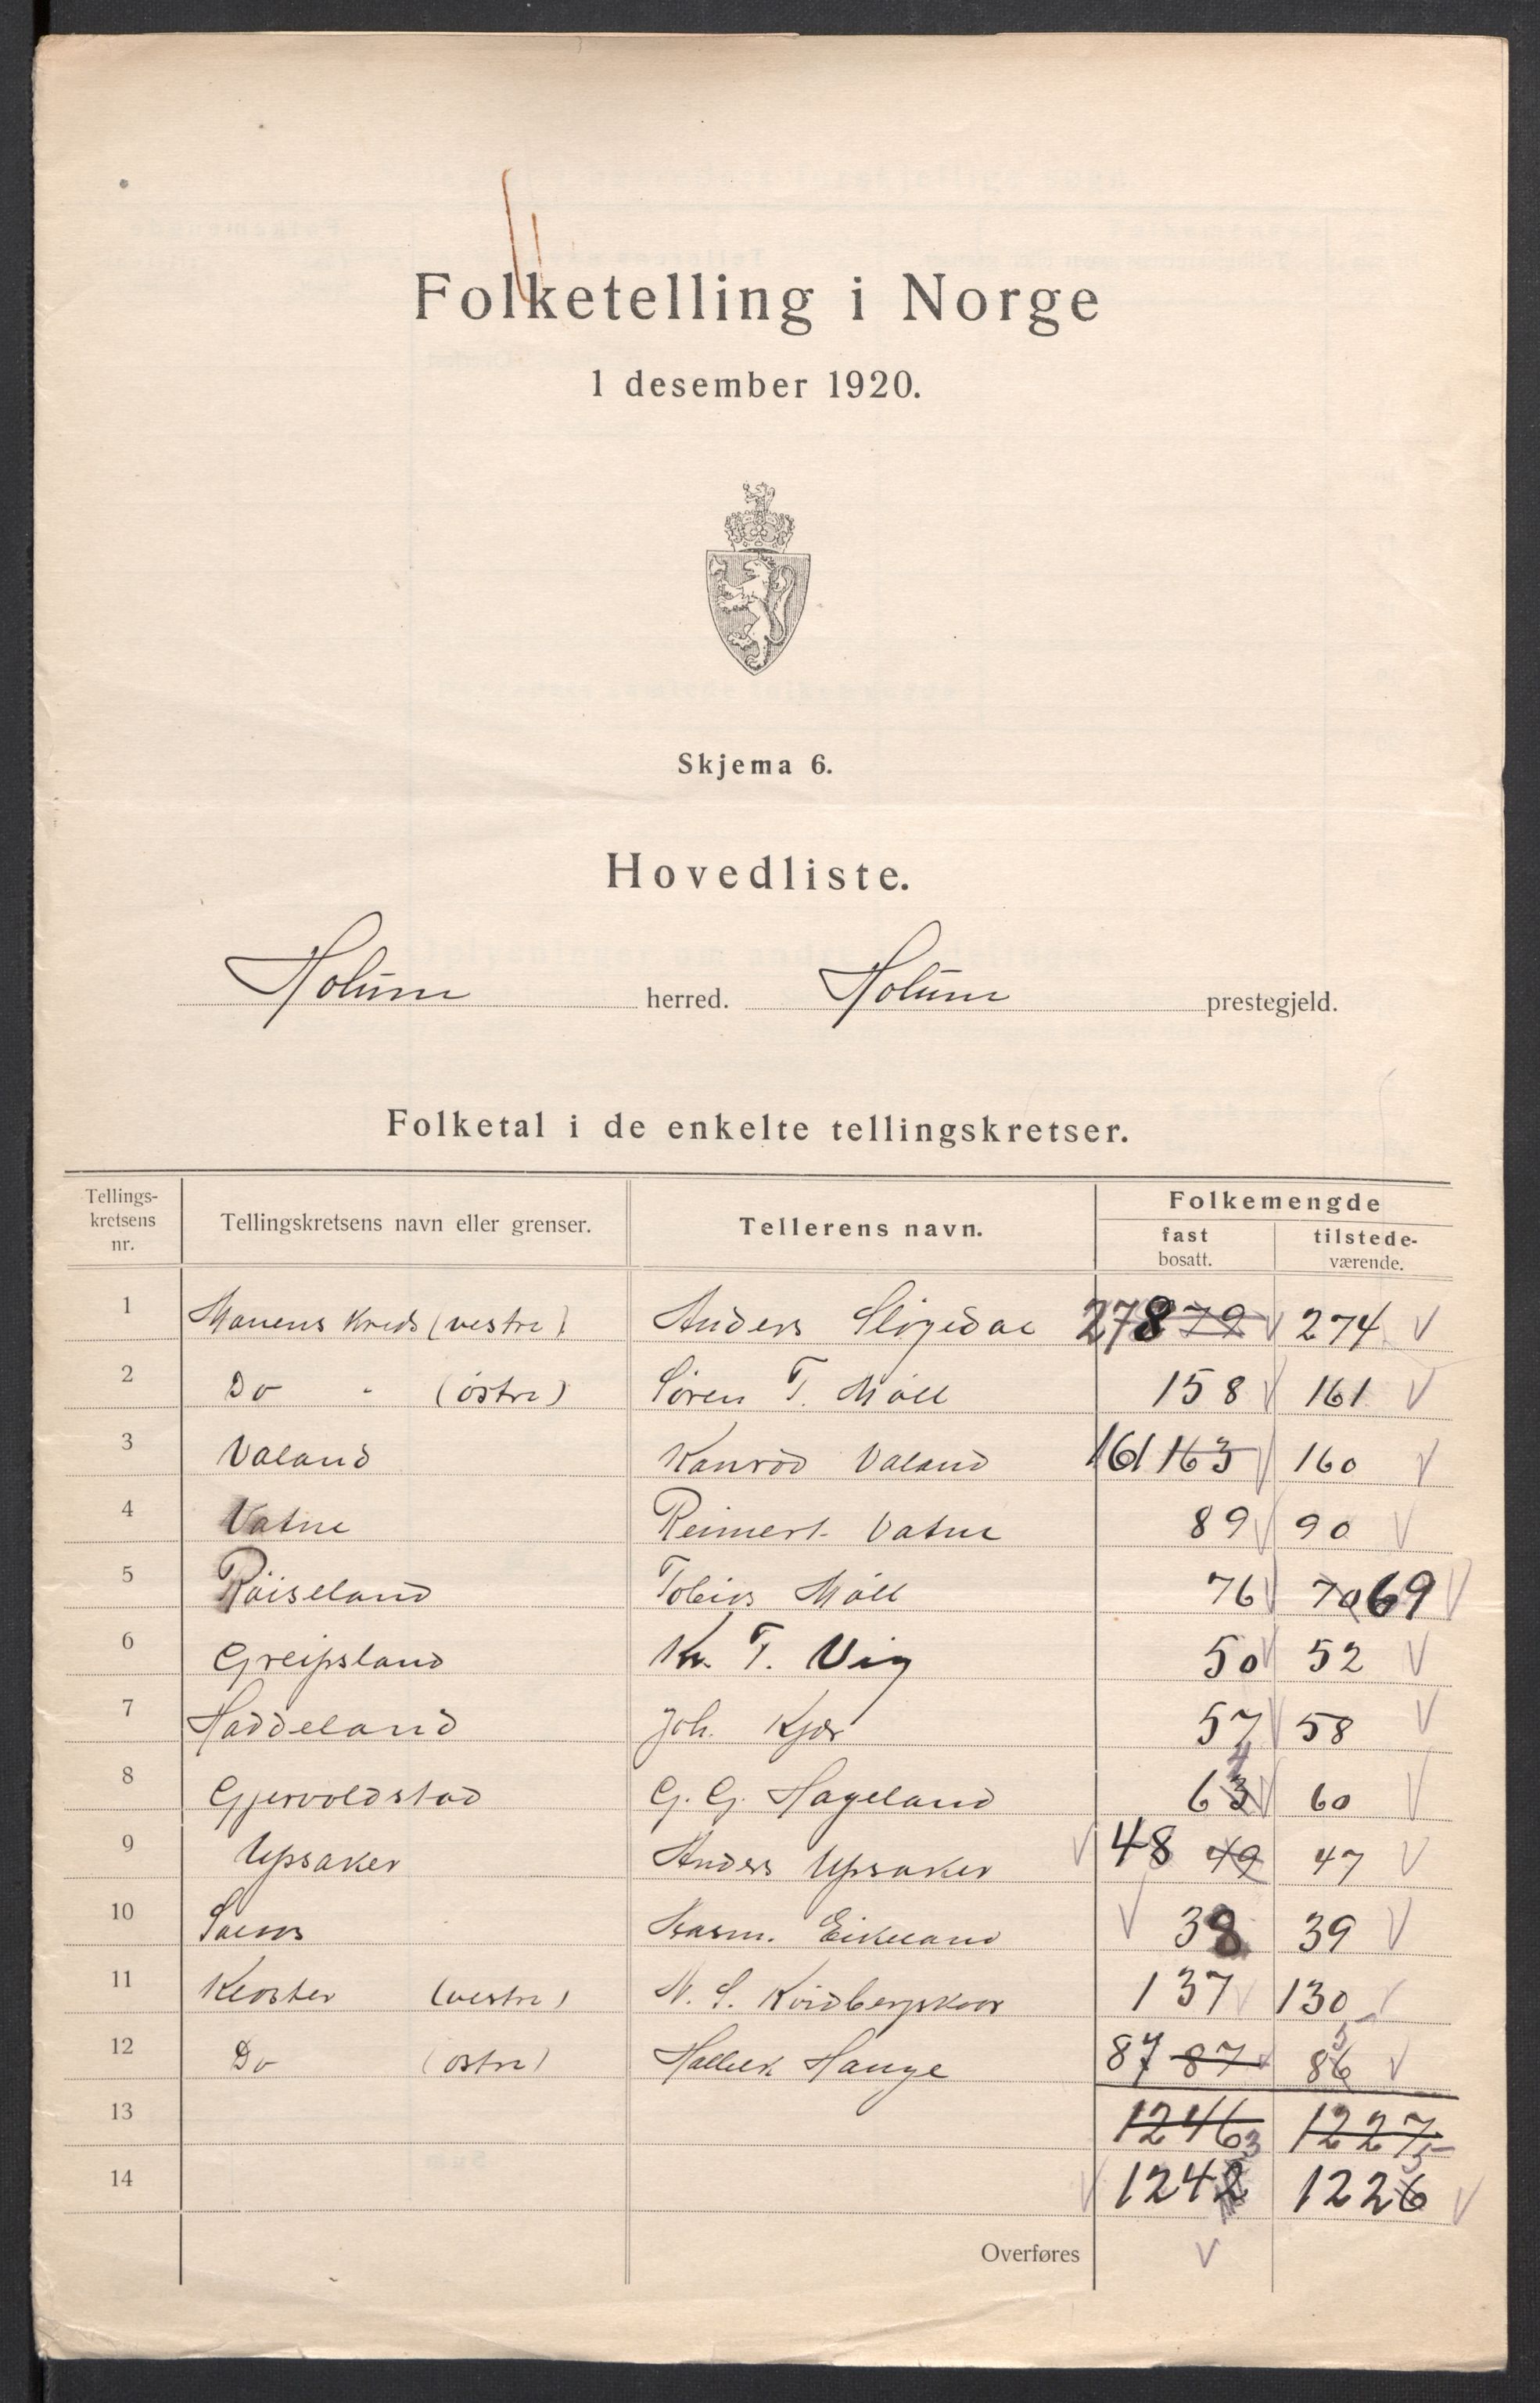 Folketelling i Norge
1 desember 1920.
Skjema 6.
Hovedliste.
Holum herred. Holum prestegjeld.
Folketal i de enkelte tellingskretser.
Tellings-
kretsens
nr.
Tellingskretsens navn eller grenser.
Tellerens navn.
Folkemengde
fast
bosatt.
tilstede-
værende.
1 Manens Kreds (vestre) Anders Sløgedal 278 79 274
2 Do " (östre) Søren T. Möll 158 161
3 Valand Konrad Valand 161 163 160
4 Vatne Reimert Vatne 89 90
5 Röiseland Tobias Möll 76 70 69
6 Greipsland Kr. T. Vig 50 52
7 Haddeland Joh. Kjær 57 58
8 Gjervoldstad G. G. Hageland 63 4 60
9 Upsaker Anders Upsaker 48 49 47
10 Rasm. Eikeland 38 39
11 Kloster (vestre) N. S. Kvidbergskor 137 130
12 Do (østre) Hallek Hauge 87 87 86 5
13 1246 1227
14 1242 3 1226 5
Overføres